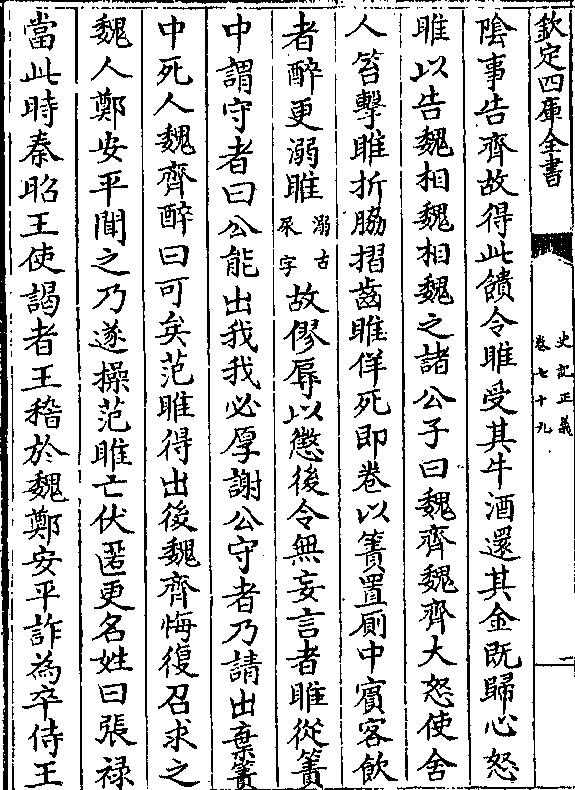 欽定四庫全書
史記正義
卷七十九
一
陰事告齊故得此饋令雎受其牛酒還其金既歸心怒
雎以告魏相魏相魏之諸公子曰魏齊魏齊大怒使舍
人笞擊雎折脇摺齒雎佯死即卷以簀置厠中賓客飲
者醉更溺雎溺古尿字故僇辱以懲後令無妄言者雎從簀
中謂守者曰公能出我我必厚謝公守者乃請出棄簀
中死人魏齊醉曰可矣范雎得出後魏齊悔復召求之
魏人鄭安平聞之乃遂操范雎亡伏匿更名姓曰張禄
當此時秦昭王使謁者王稽於魏鄭安平詐為卒侍王